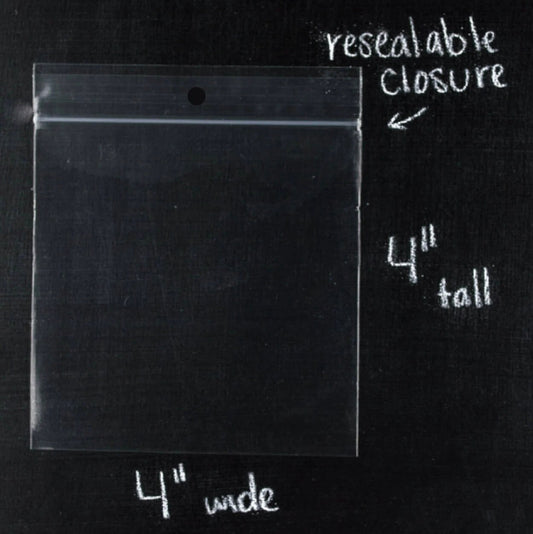 resealable
closure
4" tall
4" wide